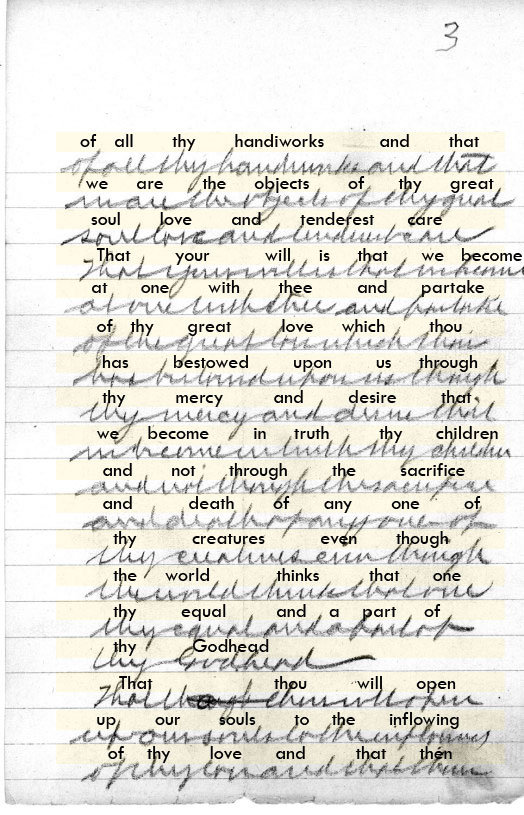 3
of all thy handiworks and that
of all thy handiworks and that
we are the objects of thy great
we are the objects of thy great
soul love and tenderest care
soul love and tenderest care
That your will is that we become
That your will is that we become
at one with thee and partake
at one with thee and partake
of thy great love which thou
of the great love which thou
has bestowed upon us through
has bestowed upon us through
thy mercy and desire that
thy mercy and desire that
we become in truth thy children
we become in truth thy children
and not through the sacrifice
and not through the sacrifice
and death of any one of
and death of any one of
thy creatures even though
thy creatures even though
the world thinks that one
the world thinks that one
thy equal and a part of
thy equal and a part of
thy Godhead
thy Godhead
That thou will open
That thou will open
up our souls to the inflowing
up our souls to the inflowing
of thy love and that then
of thy love and that then